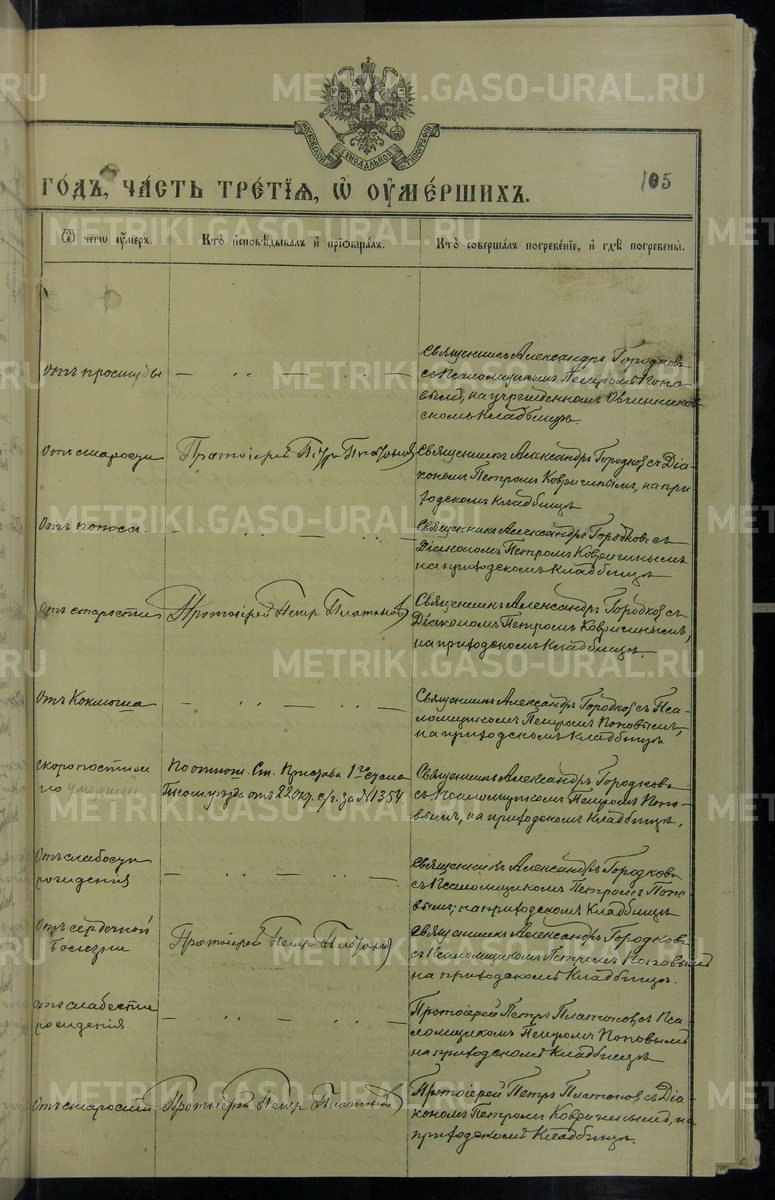 METRIKI.GASO-URAL.RU
МОСКОВСКОЙ СѴНОДАЛЬНОЙ ТИПОГРАФІИ
105
ГО́ДЪ, ЧА́СТЬ ТРЕ́ТІѦ, Ѡ ОУ҆МЕ́РШИХЪ.
Ѿ чегѡ оу҆́меръ.
Кто̀ и҆сповѣ́дывалъ и҆ прїѡбща́лъ.
Кто̀ соверша́лъ погребе́нїе, и҆ гдѣ̀ погребены̀.
Отъ простуды
Священникъ Александръ Городковъ
съ Псаломщикомъ Петромъ Попо-
вымъ, на учрежденномъ Овчинников-
скомъ кладбищѣ.
Отъ старости
Протоіерей Петръ Платоновъ
Священникъ Александръ Городковъ съ Діа-
кономъ Петромъ Ковригинымъ, на при-
ходскомъ кладбищѣ
Отъ поноса
Священникъ Александръ Городковъ съ
Діакономъ Петромъ Ковригинымъ
на приходскомъ кладбищѣ
Отъ старости
Протоіерей Петръ Платоновъ
Священникъ Александръ Городковъ съ
Діакономъ Петромъ Ковригинымъ,
на приходскомъ кладбищѣ.
Отъ коклюша
Священникъ Александръ Городковъ съ Пса-
ломщикомъ Петромъ Поповымъ,
на приходскомъ кладбищѣ
скоропостижно
По отнош. Ст. Пристава 1го стана
уѣзда отъ 22 окт. с/г. за №1354.
Священникъ Александръ Городковъ
съ Псаломщикомъ Петромъ Попо-
вымъ, на приходскомъ кладбищѣ.
Отъ слабости
рожденія
Священникъ Александръ Городковъ
съ Псаломщикомъ Петромъ Попо
вымъ; на приходскомъ кладбищѣ
Отъ сердечной
болѣзни
Протоіерей Петръ Платоновъ
Священникъ Александръ Городковъ
съ Псаломщикомъ Петромъ Поповымъ
на приходскомъ кладбищѣ.
отъ слабости
рожденія
Протоіерей Петръ Платоновъ съ Пса-
ломщикомъ Петромъ Поповымъ
на приходскомъ кладбищѣ
Отъ старости
Протоіерей Петръ Платоновъ
Протоіерей Петръ Платоновъ съ Діа-
кономъ Петромъ Ковригинымъ, на
приходскомъ кладбищѣ.